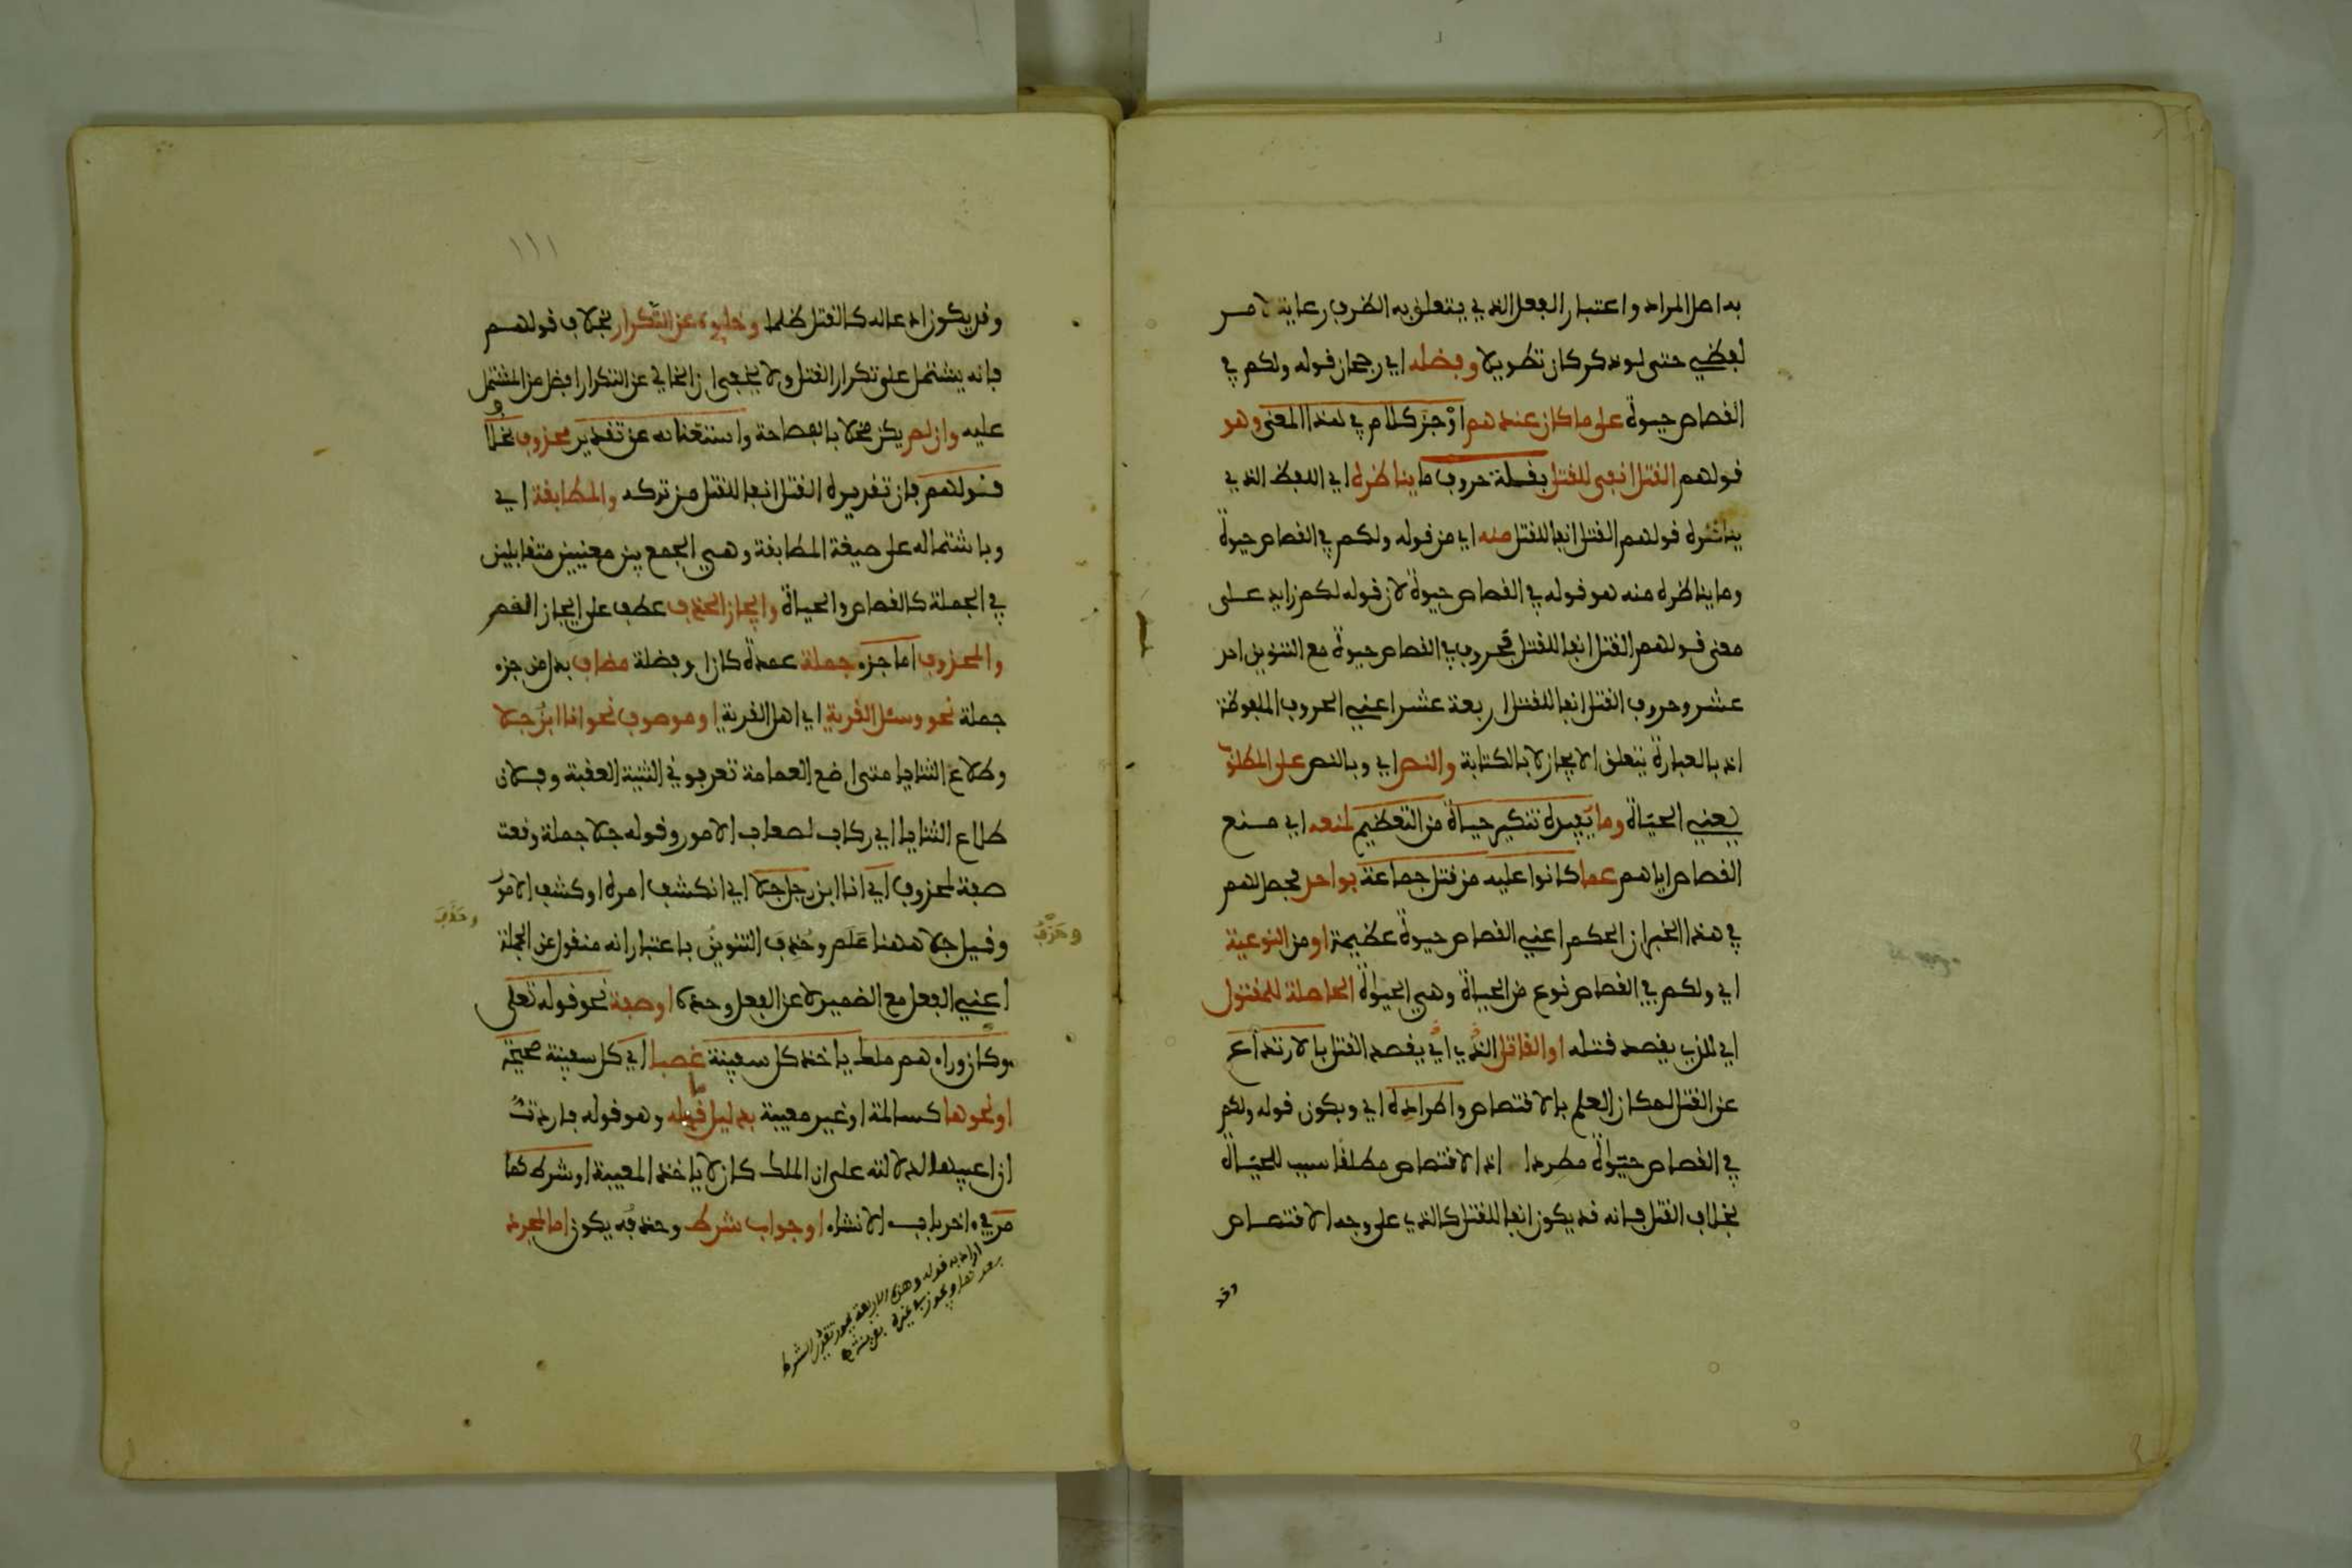 به اصل المراد واعتبار الفعل الذي يتعلق به الظرف رعاية لامر
لفظي حتى لو ذكر كان تطويلا وفضله اي رجحان قوله ولكم في
القصاص حيوة على ما كان عندهم اوجز كلام في هذا المعنى وهو
قولهم القتل انفى للقتل بقلة حروف ما يناظره اي اللفظ الذي
يناظره قولهم القتل انفا للقتل منه اي من قوله ولكم في القصاص حيوة
وما يناظره منه هو قوله في القصاص حيوة لان قوله لكم زايد على
معنى قولهم القتل انفا للقتل فحروف في القصاص حيوة مع التنوين احد
عشر وحروف القتل انفا للقتل اربعة عشر اعني الحروف الملفوظة
اذ بالعبارة يتعلق الايجاز لا بالكتابة والنص اي وبالنص على المطلوب
يعني الحياة وما يفيده تنكير حياة من التعظيم لمنعه اي منع
القصاص اياهم عما كانوا عليه من قتل جماعة بواحد فحصل لهم
في هذا الخبر ان الحكم اعني القصاص حيوة عظيمة او من النوعية
اي ولكم في القصاص نوع من الحياة وهي الحيوة الحاصلة للمقتول
اي الذي يقصد قتله او القاتل الذي اي يقصد القتل بالارتداع
عن القتل لمكان العلم بالاقتصاص واطراده اي وبكون قوله ولكم
في القصاص حيوة مطردا اذ الاقتصاص مطلقا سبب للحياة
بخلاف القتل فانه قد يكون انفا للقتل كالذي على وجه الاقتصاص
وقد
١١١
وقد يكون ادعا له كالقتل ظلما وخلوه عن التكرار بخلاف قولهم
فانه يشتمل على تكرار القتل ولا يخفى ان الخالي عن التكرار افضل من المشتمل
عليه وان لم يكن مخلا بالفصاحة واستغنائه عن تقدير محذوف بخلاف
قولهم فان تقديره القتل انفا للقتل من تركه والمطابقة اي
وباشتماله على صيغة المطابقة وهي الجمع بين معنيين متقابلين
في الجملة كالقصاص والحياة وايجاز الحذف عطف على ايجاز القصر
والمحذوف اما جزء جملة عمدة كان او فضلة مضاف بدل من جزء
جملة نحو وسئل القرية اي اهل القرية او موصوف نحو انا ابن جلا
وطلاع الثنايا متى اضع العمامة تعرفوني الثنية العقبة وفلان
طلاع الثنايا اي ركاب لصعاب الامور وقوله جلا جملة وقعت
صفة لمحذوف اي انا ابن رجل جلا اي انكشف امره او كشف الامور
وقيل جلا ههنا علم وحذف التنوين باعتبار انه منقول عن الجملة
وحذف
وحذف
اعني الفعل مع الضمير لا عن الفعل وحده او صفة نحو قوله تعلى
وكان وراءهم ملك ياخذ كل سفينة غصبا اي كل سفينة صحيحة
او نحوها كسالمة او غير معيبة بدليل ما قبله وهو قوله فاردت
ان اعيبها لدلالته على ان الملك كان لا ياخذ المعيبة او شرط كما
مر في ءاخر باب الانشاء او جواب شرط وحذفه يكون اما لمجرد
اراد به قوله وهذه الاربعة يجوز تقدير الشرط
بعدها ويجوز في غيره بقرينة